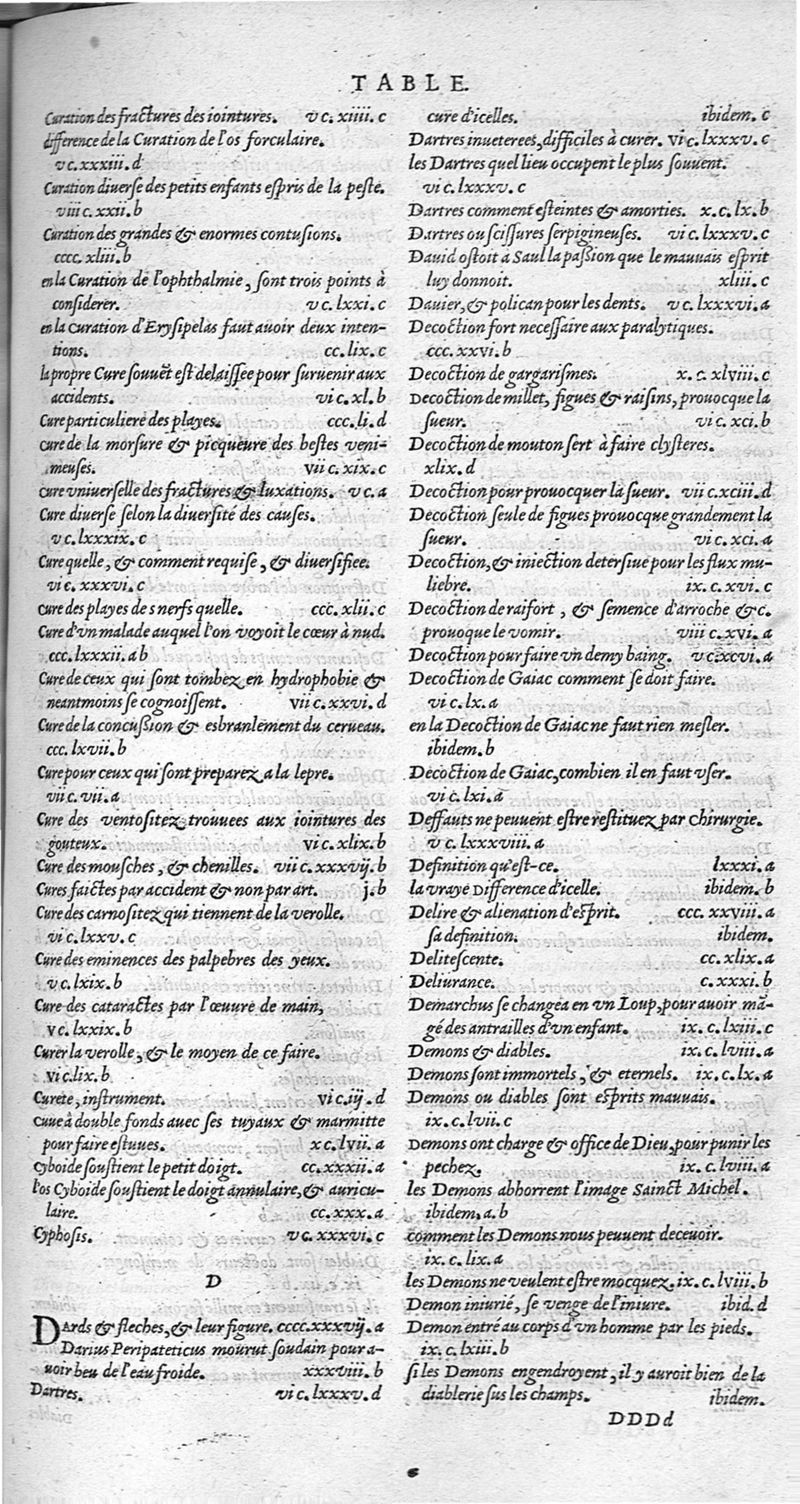 TABLE.
Curation des fractures des iointures. v c. xiiii. c
difference de la Curation de l'os forculaire.
v c. xxxiii. d
Curation diuerse des petits enfants espris de la peste.
viii c. xxii. b
Curation des grandes & enormes contusions.
cccc. xliii. b
en la Curation de l'ophthalmie, sont trois points à
considerer. v c. lxxi. c
en la curation d'Erysipelas faut auoir deux inten-
tions. cc. lix. c
la propre Cure souuēt est delaissée pour suruenir aux
accidents. vi c. xl. b
Cure particuliere des playes. ccc. li. d
cure de la morsure & picqueure des bestes veni-
meuses. vii c. xix. c
cure vniuerselle des fractures & luxations. v c. a
Cure diuerse selon la diuersité des causes.
v c. lxxxix. c
Cure quelle, & comment requise, & diuersifiee.
vi c. xxxvi. c
cure des playes de s nerfs quelle. ccc. xlii. c
Cure d'vn malade auquel l'on voyoit le cœur à nud.
ccc. lxxxii. a b
Cure de ceux qui sont tombez en hydrophobie &
neantmoins se cognoissent. vii c. xxvi. d
Cure de la concussion & esbranlement du cerueau.
ccc. lxvii. b
Cure pour ceux qui sont preparez a la lepre.
vii c. vii. a
Cure des ventositez trouuees aux iointures des
gouteux. vi c. xlix. b
Cure des mousches, & chenilles. vii c. xxxvij. b
Cures faictes par accident & non par art. j. b
Cure des carnositez qui tiennent de la verolle.
vi c. lxxv. c
Cure des eminences des palpebres des yeux.
v c. lxix. b
Cure des cataractes par l'œuure de main,
v c. lxxix. b
Curer la verolle, & le moyen de ce faire.
vi c. lix. b
Curete, instrument. vi c. iij. d
Cuue à double fonds auec ses tuyaux & marmitte
pour faire estuues. x c. lvii. a
Cyboide soustient le petit doigt. cc. xxxii. a
l'os Cyboide soustient le doigt annulaire, & auricu-
laire. cc. xxx. a
Cyphosis. v c. xxxvi. c
D
DArds & fleches, & leur figure. cccc. xxxvij. a
Darius Peripateticus mourut soudain pour a-
uoir beu de l'eau froide. xxxviii. b
Dartres. vi c. lxxxv. d
cure d'icelles. ibidem. c
Dartres inueterees, difficiles à curer. vi c. lxxxv. c
les Dartres quel lieu occupent le plus souuent.
vi c. lxxxv. c
Dartres comment esteintes & amorties. x. c. lx. b
Dartres ou scissures serpigineuses. vi c. lxxxv. c
Dauid ostoit à Saul la passion que le mauuais esprit
luy donnoit. xliii. c
Dauier, & polican pour les dents. v c. lxxxvi. a
Decoction fort necessaire aux paralytiques.
ccc. xxvi. b
Decoction de gargarismes. x. c. xlviii. c
Decoction de millet, figues & raisins, prouocque la
sueur. vi c. xci. b
Decoction de mouton sert à faire clysteres.
xlix. d
Decoction pour prouocquer la sueur. vii c. xciii. d
Decoction seule de figues prouocque grandement la
sueur. vi c. xci. a
Decoction, & iniection detersiue pour les flux mu-
liebre. ix. c. xvi. c
Decoction de raifort, & semence d'arroche & c.
prouoque le vomir. viii c. xvi. a
Decoction pour faire vn demy baing. v c. xcvi. a
Decoction de Gaiac comment se doit faire.
vi c. lx. a
en la Decoction de Gaiac ne faut rien mesler.
ibidem. b
Decoction de Gaiac, combien il en faut vser.
vi c. lxi. a
Deffauts ne peuuent estre restituez par chirurgie.
v c. lxxxviii. a
Definition qu'est-ce. lxxxi. a
la vraye Difference d'icelle. ibidem. b
Delire & alienation d'esprit. ccc. xxviii. a
sa definition. ibidem.
Delitescente. cc. xlix. a
Deliurance. c. xxxi. b
Demarchus se changea en vn Loup, pour auoir mā-
gé des antrailles d'vn enfant. ix. c. lxiii. c
Demons & diables. ix. c. lviii. a
Demons sont immortels, & eternels. ix. c. lx. a
Demons ou diables sont esprits mauuais.
ix. c. lvii. c
Demons ont charge & office de Dieu, pour punir les
pechez. ix. c. lviii. a
les Demons abhorrent l'image Sainct Michel.
ibidem. a. b
comment les Demons nous peuuent deceuoir.
ix. c. lix. a
les Demons ne veulent estre mocquez. ix. c. lviii. b
Demon iniurié, se venge de l'iniure. ibid. d
Demon entré au corps d'vn homme par les pieds.
ix. c. lxiii. b
si les Demons engendroyent, il y auroit bien de la
diablerie sus les champs. ibidem.
DDDd